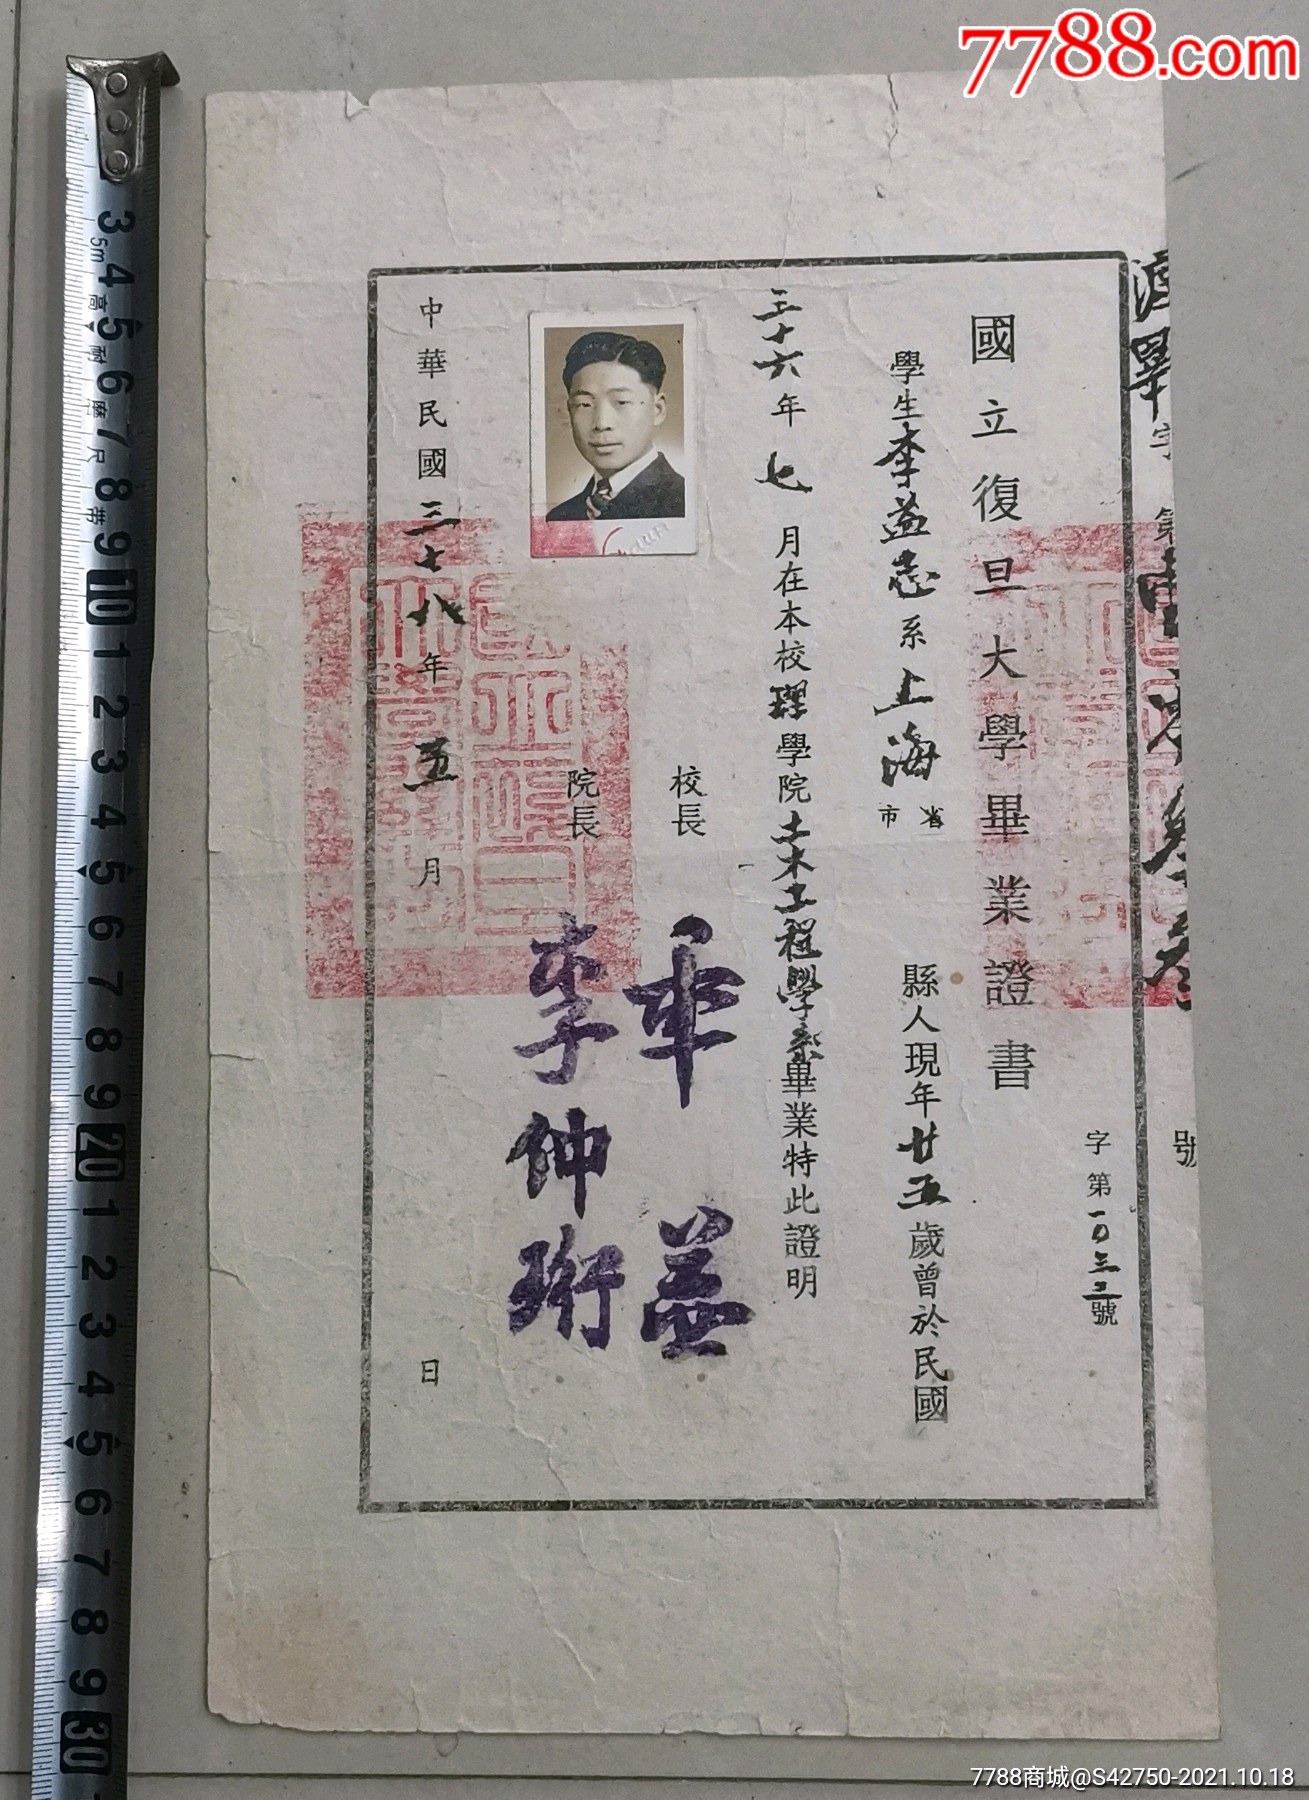 7788.com
國立復旦大學畢業證書
字第一〇三二號
學生李益志系上海省市縣人現年廿五歲曾於民國
三十六年七月在本校理學院土木工程學系畢業特此證明
校長 章益
院長 李仲珩
中華民國三十八年五月 日
號
3 4 5 6 7 8 9 10 1 2 3 4 5 6 7 8 9 20 1 2 3 4 5 6 7 8 9 30
5m 高耐磨尺帶
7788商城@S42750-2021.10.18